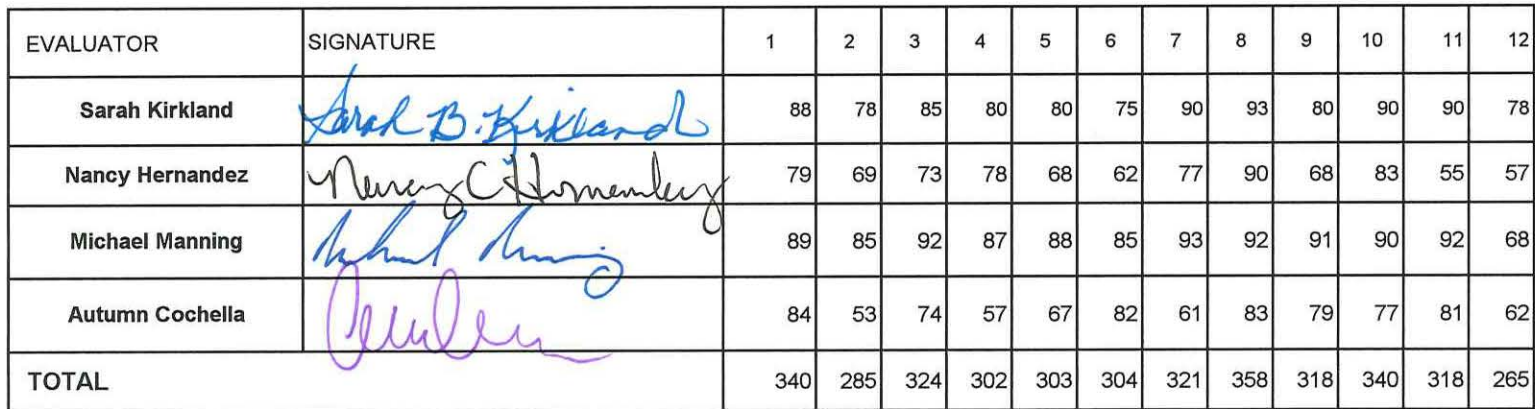 EVALUATOR SIGNATURE 1 2 3 4 5 6 7 8 9 10 11 12
Sarah Kirkland Sarah B. Kirkland 88 78 85 80 80 75 90 93 80 90 90 78
Nancy Hernandez Nancy C Hernandez 79 69 73 78 68 62 77 90 68 83 55 57
Michael Manning Michael Manning 89 85 92 87 88 85 93 92 91 90 92 68
Autumn Cochella 84 53 74 57 67 82 61 83 79 77 81 62
TOTAL 340 285 324 302 303 304 321 358 318 340 318 265